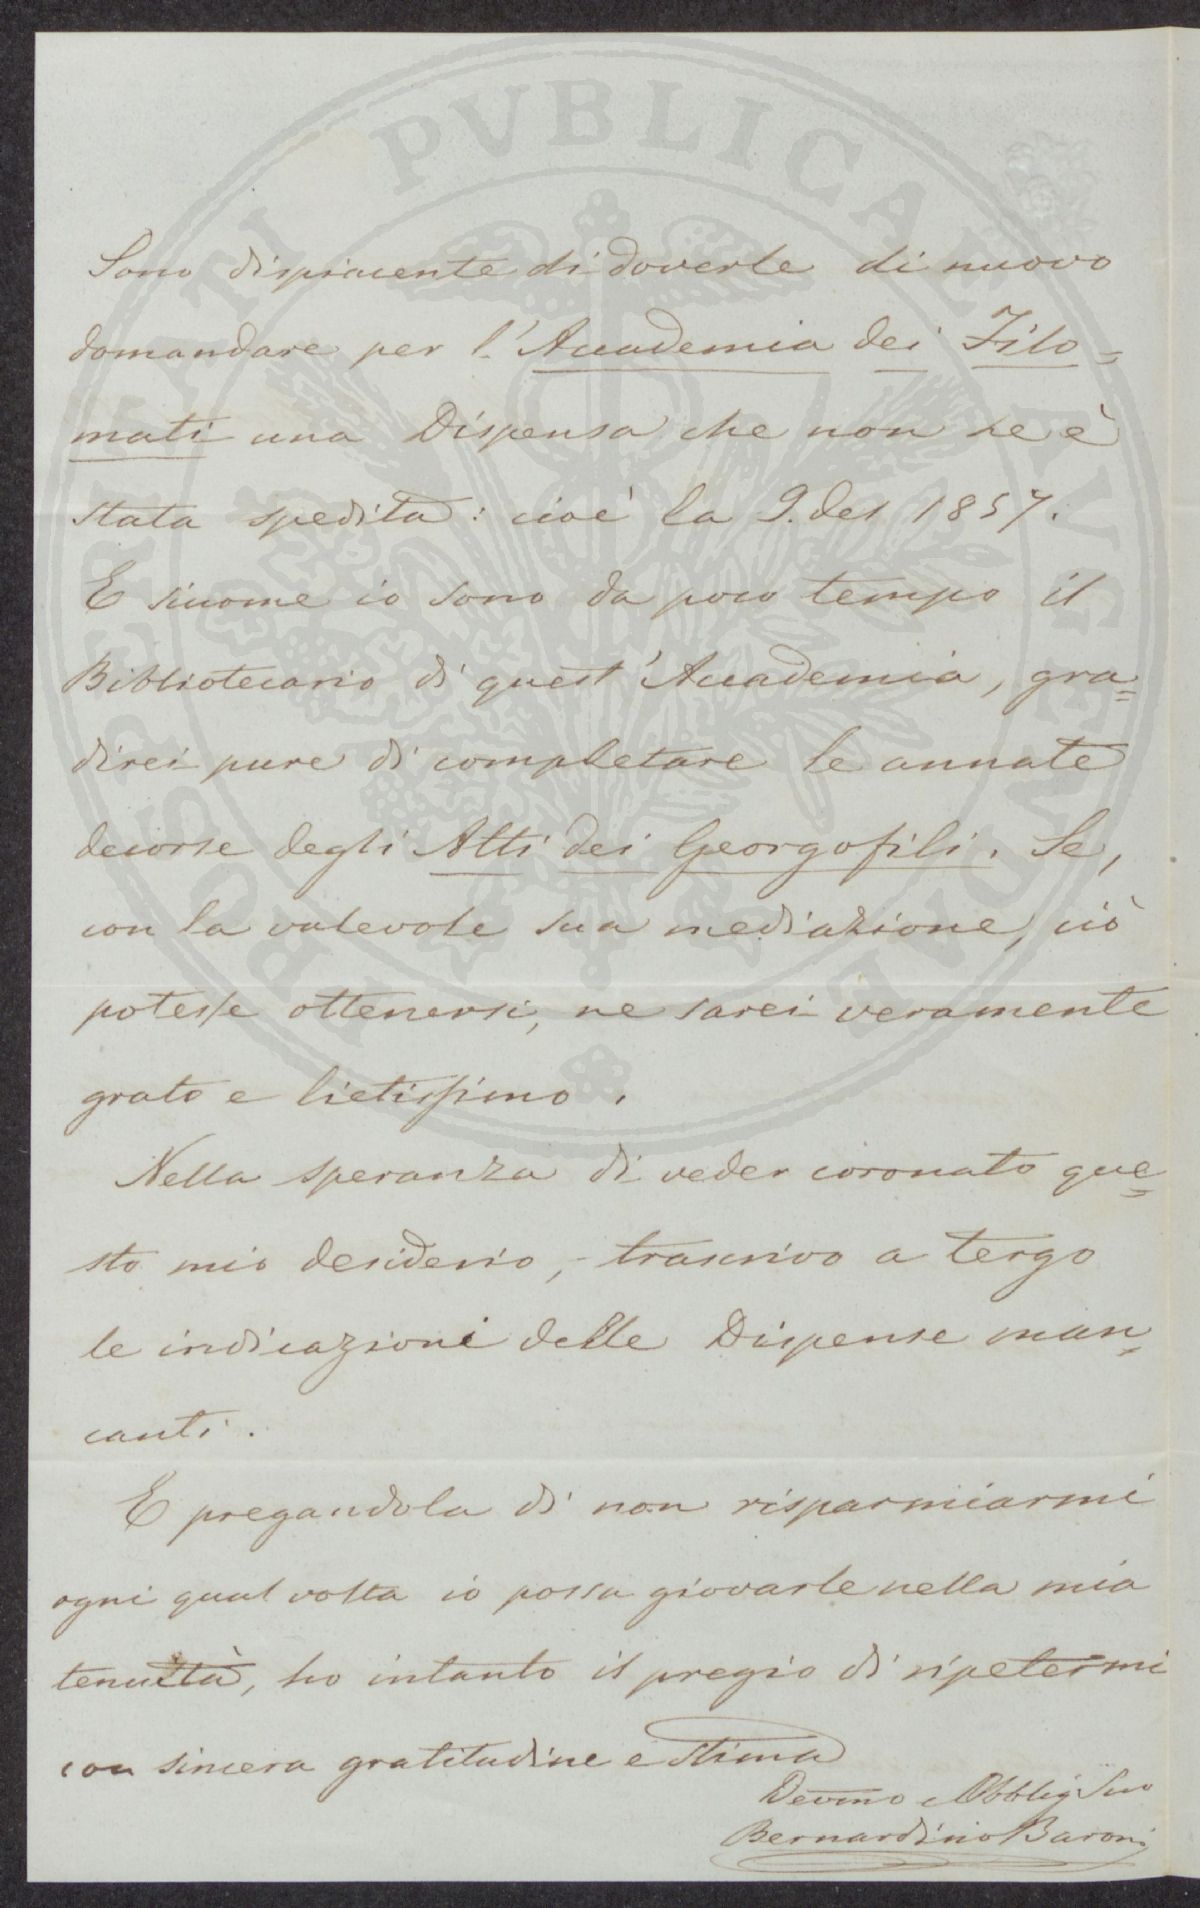 Sono dispiacente di doverle di nuovo
domandare per l'Accademia dei Filo=
mati una Dispensa che non le è
stata spedita: cioè la 9. del 1857.
E siccome io sono da poco tempo il
Bibliotecario di quest'Accademia, gra=
direi pure di completare le annate
decorse degli Atti dei Georgofili. Se,
con la valevole sua mediazione, ciò
potesse ottenersi, ne sarei veramente
grato e lietissimo.
Nella speranza di veder coronato que=
sto mio desiderio, trascrivo a tergo
le indicazioni delle Dispense man=
canti.
E pregandola di non risparmiarmi
ogni qual volta io possa giovarle nella mia
tenuità, ho intanto il pregio di ripetermi
con sincera gratitudine e stima
Devmo e Obblig Suo
Bernardino Baroni
PROSPERITATI PVBLICAE AVGENDAE